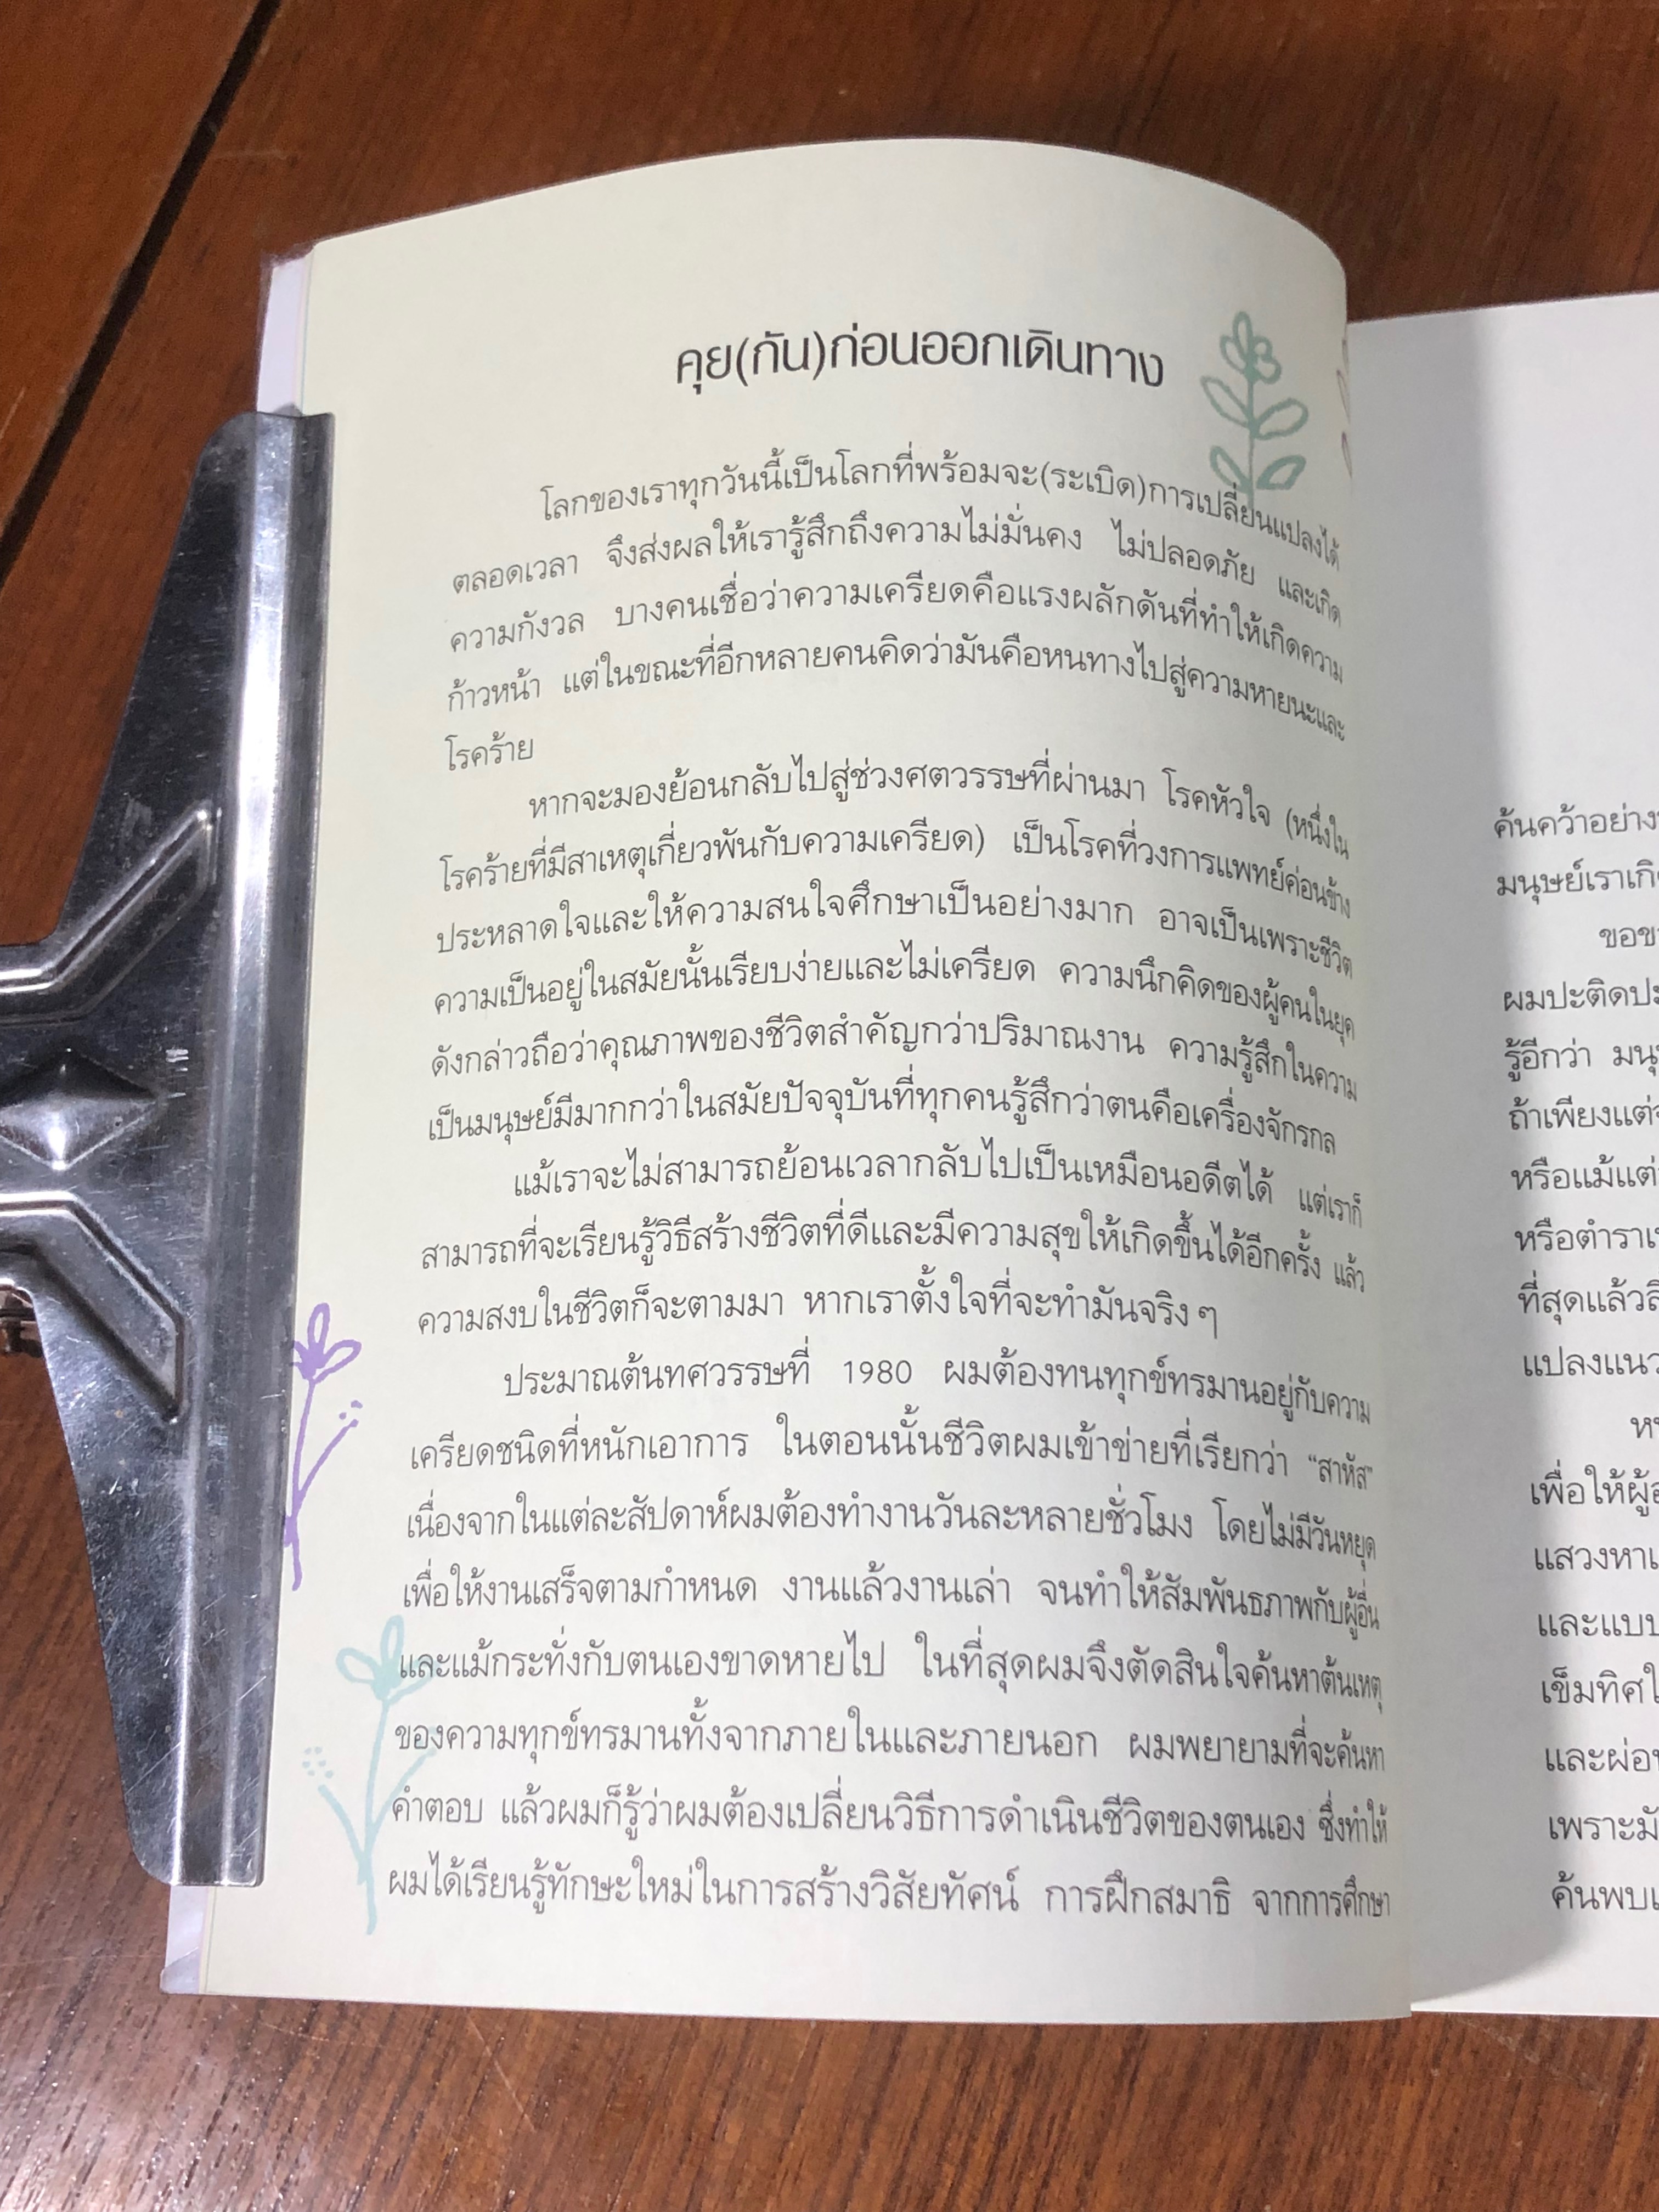 คุย(กัน)ก่อนออกเดินทาง
โลกของเราทุกวันนี้เป็นโลกที่พร้อมจะ(ระเบิด)การเปลี่ยนแปลงได้
ตลอดเวลา จึงส่งผลให้เรารู้สึกถึงความไม่มั่นคง ไม่ปลอดภัย และเกิด
ความกังวล บางคนเชื่อว่าความเครียดคือแรงผลักดันที่ทำให้เกิดความ
ก้าวหน้า แต่ในขณะที่อีกหลายคนคิดว่ามันคือหนทางไปสู่ความหายนะและ
โรคร้าย
หากจะมองย้อนกลับไปสู่ช่วงศตวรรษที่ผ่านมา โรคหัวใจ (หนึ่งใน
โรคร้ายที่มีสาเหตุเกี่ยวพันกับความเครียด) เป็นโรคที่วงการแพทย์ค่อนข้าง
ประหลาดใจและให้ความสนใจศึกษาเป็นอย่างมาก อาจเป็นเพราะชีวิต
ความเป็นอยู่ในสมัยนั้นเรียบง่ายและไม่เครียด ความนึกคิดของผู้คนในยุค
ดังกล่าวถือว่าคุณภาพของชีวิตสำคัญกว่าปริมาณงาน ความรู้สึกในความ
เป็นมนุษย์มีมากกว่าในสมัยปัจจุบันที่ทุกคนรู้สึกว่าตนคือเครื่องจักรกล
แม้เราจะไม่สามารถย้อนเวลากลับไปเป็นเหมือนอดีตได้ แต่เราก็
สามารถที่จะเรียนรู้วิธีสร้างชีวิตที่ดีและมีความสุขให้เกิดขึ้นได้อีกครั้ง แล้ว
ความสงบในชีวิตก็จะตามมา หากเราตั้งใจที่จะทำมันจริง ๆ
ประมาณต้นทศวรรษที่ 1980 ผมต้องทนทุกข์ทรมานอยู่กับความ
เครียดชนิดที่หนักเอาการ ในตอนนั้นชีวิตผมเข้าข่ายที่เรียกว่า “สาหัส”
เนื่องจากในแต่ละสัปดาห์ผมต้องทำงานวันละหลายชั่วโมง โดยไม่มีวันหยุด
เพื่อให้งานเสร็จตามกำหนด งานแล้วงานเล่า จนทำให้สัมพันธภาพกับผู้อื่น
และแม้กระทั่งกับตนเองขาดหายไป ในที่สุดผมจึงตัดสินใจค้นหาต้นเหตุ
ของความทุกข์ทรมานทั้งจากภายในและภายนอก ผมพยายามที่จะค้นหา
คำตอบ แล้วผมก็รู้ว่าผมต้องเปลี่ยนวิธีการดำเนินชีวิตของตนเอง ซึ่งทำให้
ผมได้เรียนรู้ทักษะใหม่ในการสร้างวิสัยทัศน์ การฝึกสมาธิ จากการศึกษา
ค้นคว้าอย่าง
มนุษย์เราเกิ
ขอข
ผมปะติดปะ
รู้อีกว่า มนุ
ถ้าเพียงแต่
หรือแม้แต่
หรือตำราเ
ที่สุดแล้วสิ
แปลงแนว
ห
เพื่อให้ผู้
แสวงหาเ
และแบบ
เข็มทิศใ
และผ่อ
เพราะมั
ค้นพบเ